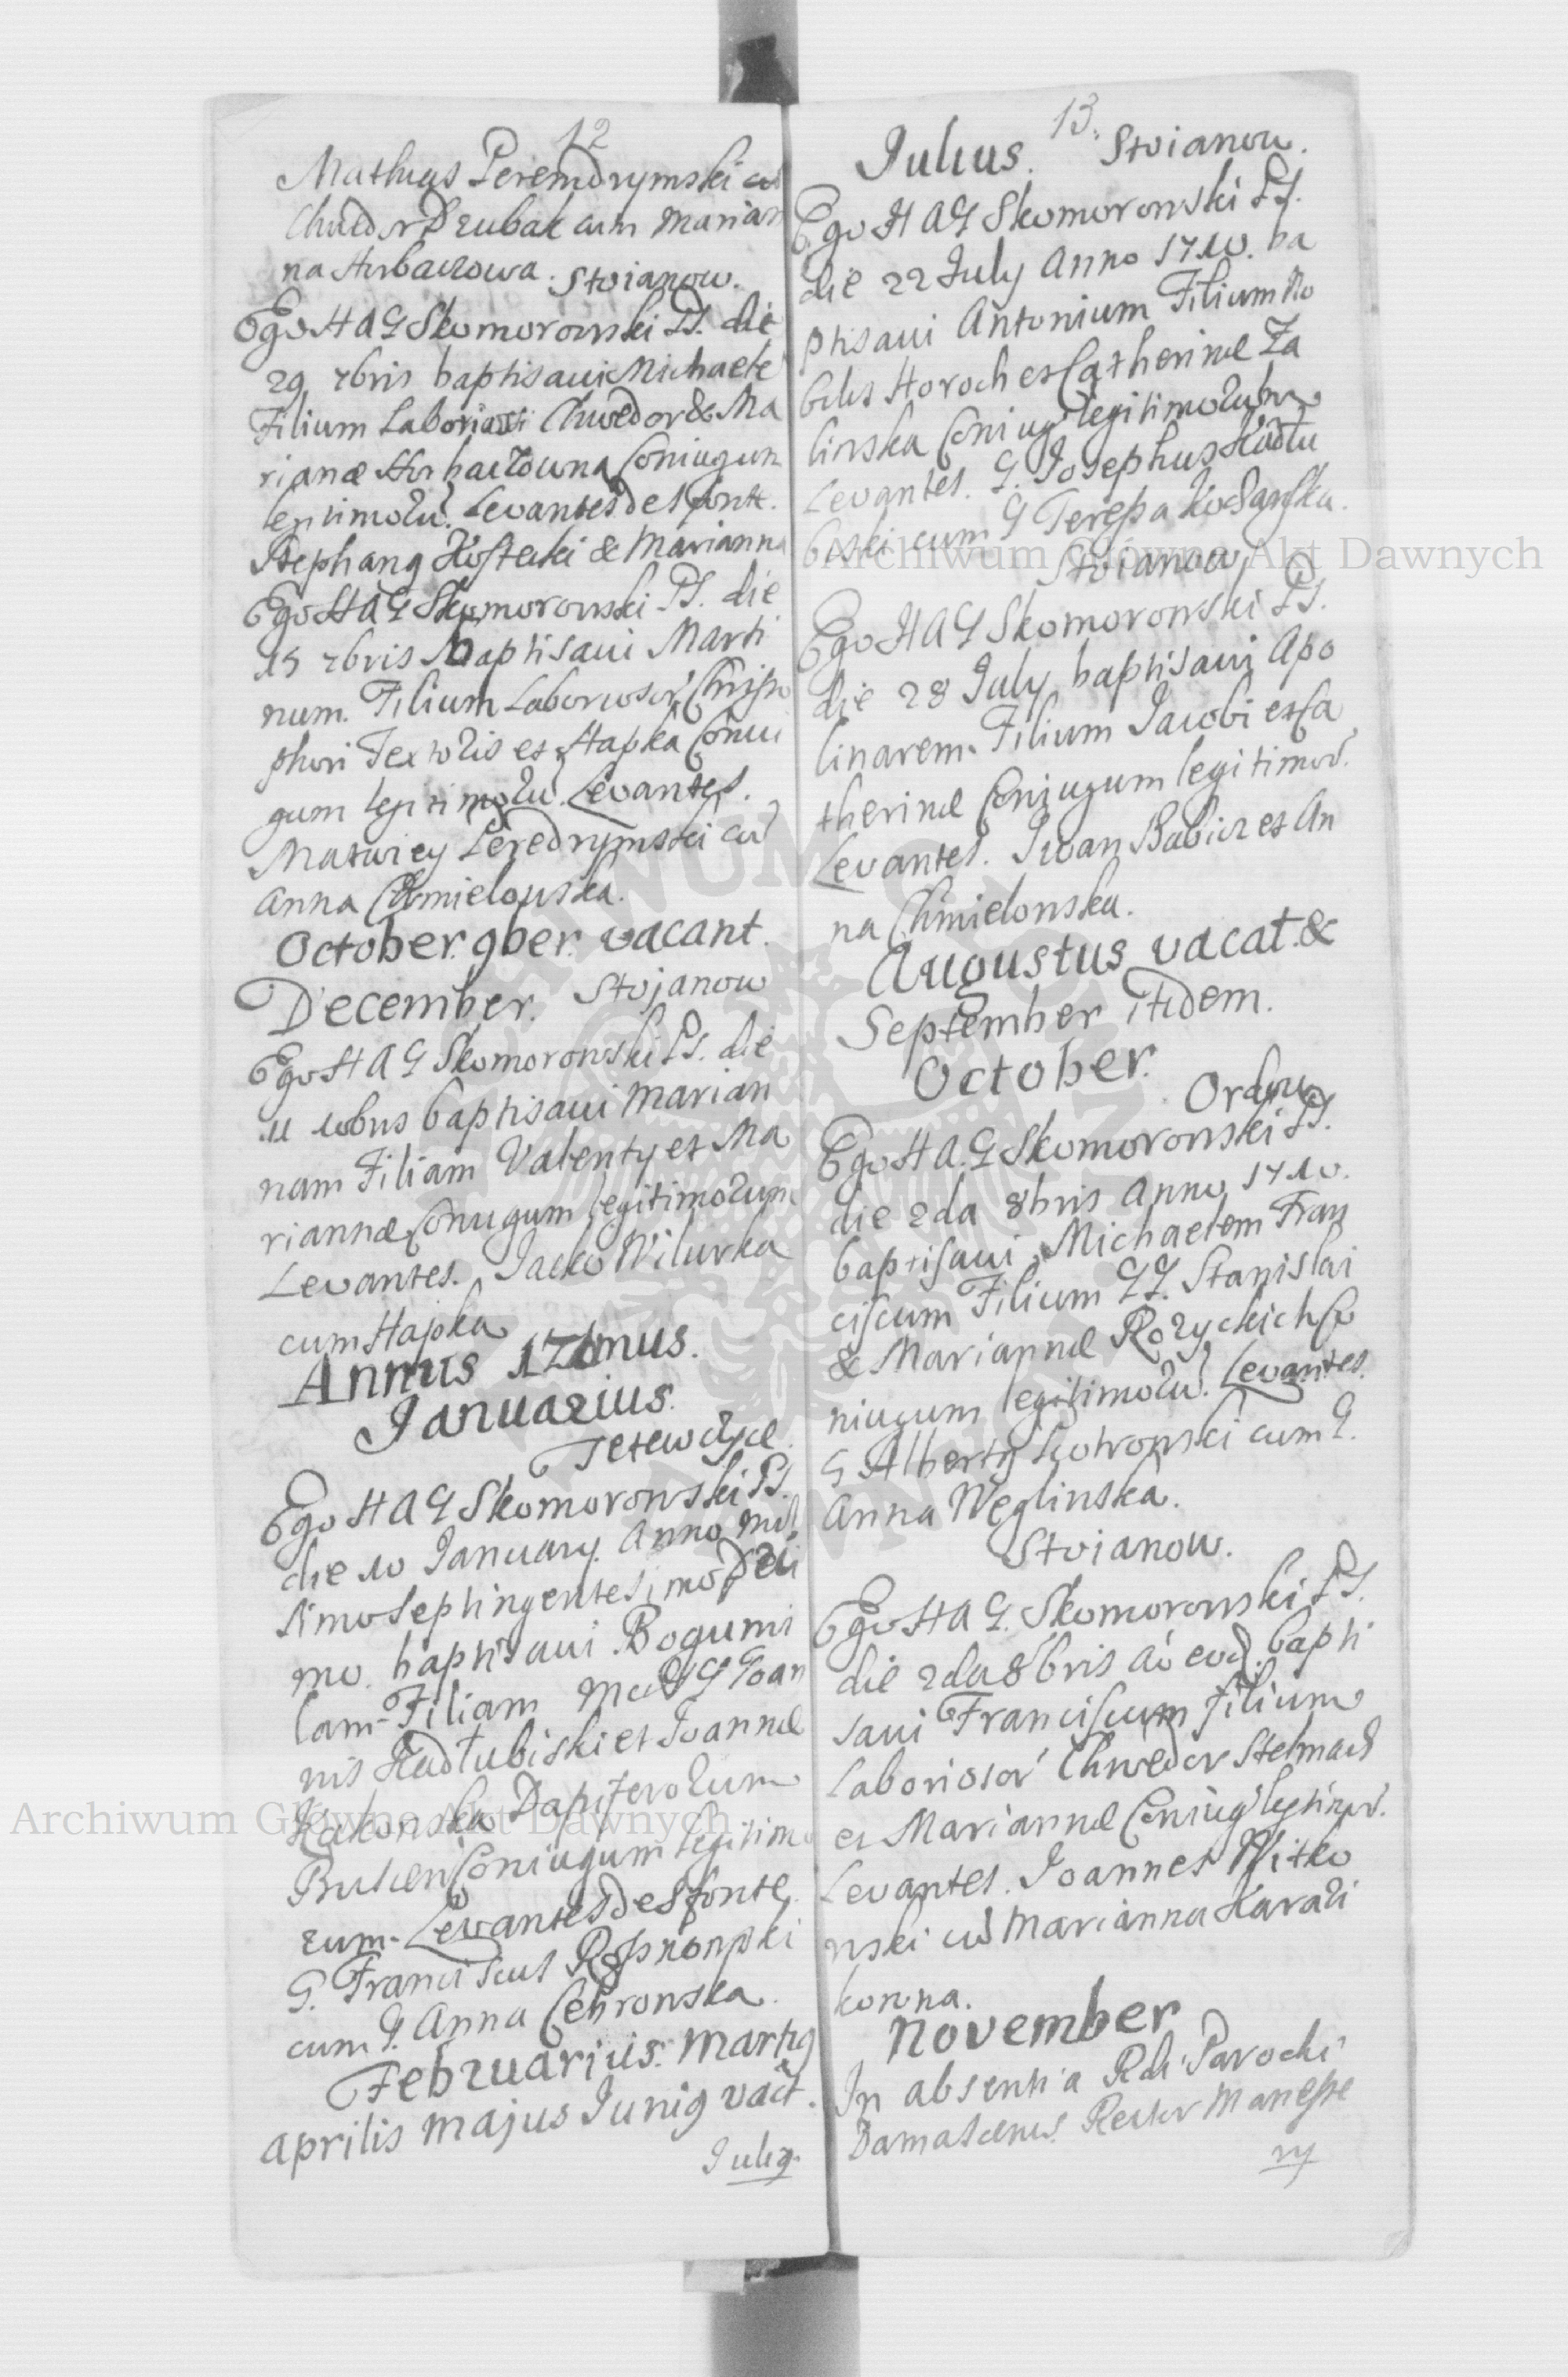 12
Mathias Peremdrymski cu
Chwedor Drubak cum Marian
na Hrbaczowa. Stoianow.
Ego H A G Skomorowski PS. die
29 7bris baptisavi Michaele
Filium Laboriosi Chwedor & Ma
rianæ Coniugum
legitimoru. Levantes de S fonte.
Stephang Kostecki & Marianna
Ego H A G Skomorowski PS. die
15 7bris baptisavi Marti
num. Filium Laboriosor Christo
phori Textoris et Hapka Coniu
gum legitimoru. Levantes.
Matwiey Peredrymski cu
Anna Chmielowska.
October. 9ber. vacant.
December. Stojanow
Ego H A G Skomorowski PS. die
11 xbris baptisavi Marian
nam Filiam Valenty et Ma
riannæ Coniugum legitimorum
Levantes. Jacko Wilurka
cum Hapka
Annus 1710mus.
Januarius.
Tetewczyce.
Ego H A G Skomorowski PS.
die 10 January. Anno mil
simo Septingentesimo Deci
mo. baptisavi Bogumi
lam Filiam G Joan
nis Kadłubiski et Joannæ
Dapiferorum
Coniugum legitimo
rum. Levantes de S fonte.
G. Franciscus
cum G. Anna Cetronska.
Februarius. Martig
Aprilis Majus Junig vact.
Julig.
13.
Julius. Stoianow.
Ego H A G Skomorowski PS.
die 22 July Anno 1710. ba
ptisavi Antonium Filium No
biles Horoch et Catherinæ Za
linska Coniug legitimorum
Levantes. G. Josephus Kadłu
biski cum G Teressa
Stoianow
Ego H A G Skomorowski PS.
die 28 July baptisavi Apo
linarem. Filium Jacobi et Ca
therinæ Coniugum legitimor.
Levantes. Iwan Babicz et An
na Chmielonska.
Augustus vacat. &
September itidem.
October.
Ordow
Ego H A. G Skomorowski PS.
die 2da 8bris Anno 1710.
baptisavi Michaelem Fran
ciscum Filium GG. Stanislai
& Mariannæ Rozyckich Co
niugum legitimoru. Levantes.
G Alberty cum G.
Anna Węglinska.
Stoianow.
Ego H A G. Skomorowski PS.
die 2da 8bris ao eod. bapti
savi Franciscum filium
Laboriosor Chwedor Stelmach
et Mariannæ Coniug legitimor.
Levantes. Joannes Witko
wski cu Marianna Karazi
kowna.
November
In absentia Rdi Parochi
Damascenus Rector Monaste
ry